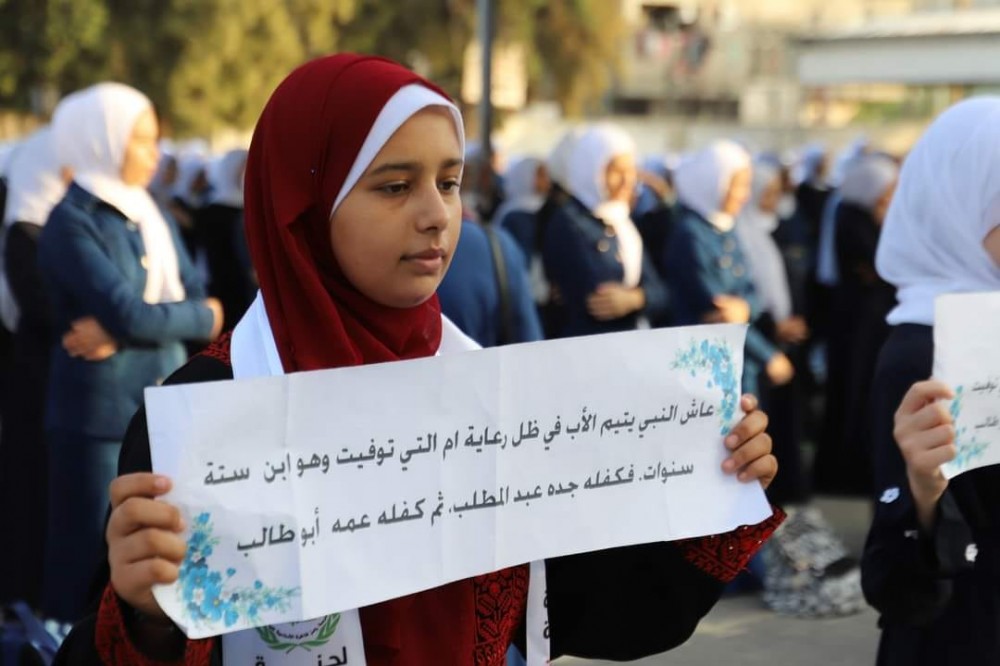 عاش النبي يتيم الأب في ظل رعاية ام التي توفيت وهو ابن ستة
سنوات. فكفله جده عبد المطلب. ثم كفله عمه أبو طالب
توفيت